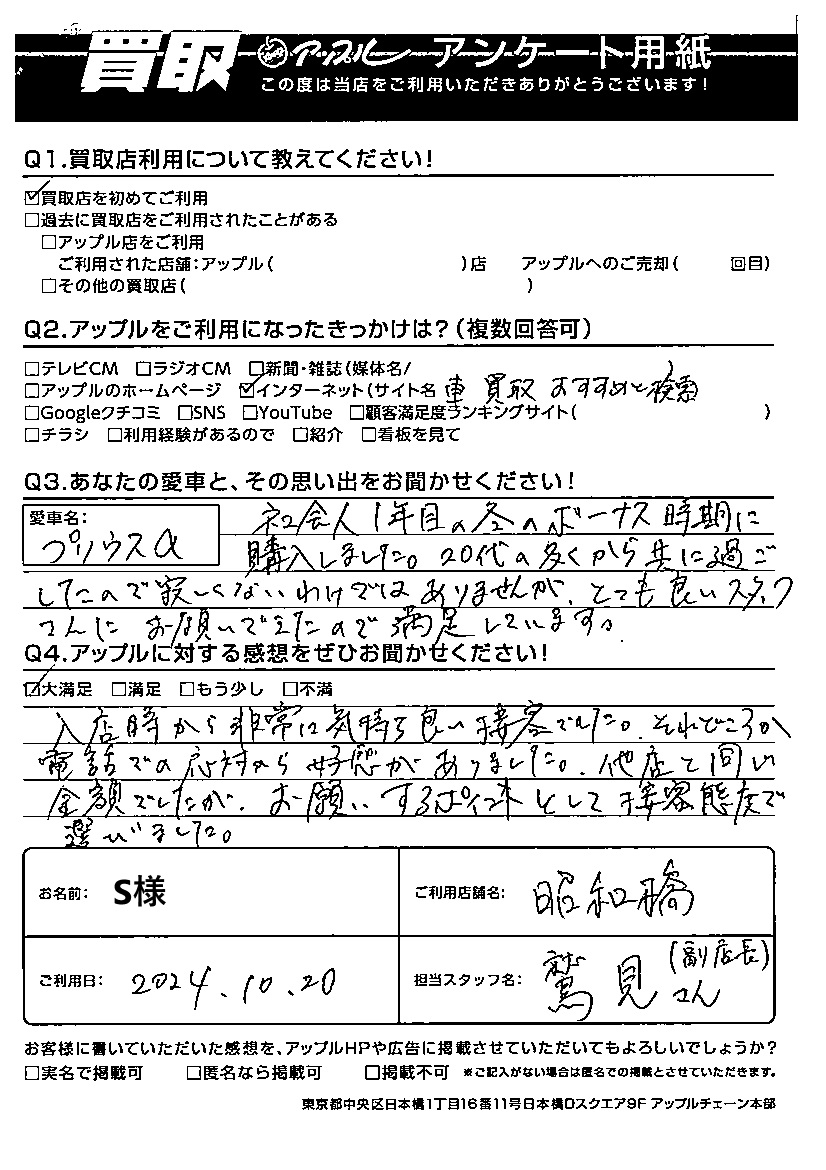 買取 アップル アンケート用紙
この度は当店をご利用いただきありがとうございます!
Q1.買取店利用について教えてください!
☑買取店を初めてご利用
□過去に買取店をご利用されたことがある
□アップル店をご利用
ご利用された店舗:アップル( )店 アップルへのご売却( 回目)
□その他の買取店( )
Q2.アップルをご利用になったきっかけは?(複数回答可)
□テレビCM □ラジオCM □新聞・雑誌(媒体名/ )
□アップルのホームページ ☑インターネット(サイト名 車 買取 おすすめと検索
□Googleクチコミ □SNS □YouTube □顧客満足度ランキングサイト( )
□チラシ □利用経験があるので □紹介 □看板を見て
Q3.あなたの愛車と、その思い出をお聞かせください!
愛車名: プリウスα
社会人1年目の冬のボーナス時期に
購入しました。20代の多くから共に過ご
したので寂しくないわけではありませんが、とても良いスタッフ
さんにお願いできたので満足しています。
Q4.アップルに対する感想をぜひお聞かせください!
☑大満足 □満足 □もう少し □不満
入店時から非常に気持ち良い接客でした。それどころか
電話での応対から好感がありました。他店と同じ
金額でしたが、お願いするポイントとして接客態度で
選びました。
お名前: S様 ご利用店舗名: 昭和橋
ご利用日: 2024.10.20 担当スタッフ名: 鷲見(副店長)さん
お客様に書いていただいた感想を、アップルHPや広告に掲載させていただいてもよろしいでしょうか?
□実名で掲載可 □匿名なら掲載可 □掲載不可 ※ご記入がない場合は匿名での掲載とさせていただきます。
東京都中央区日本橋1丁目16番11号日本橋Dスクエア9F アップルチェーン本部